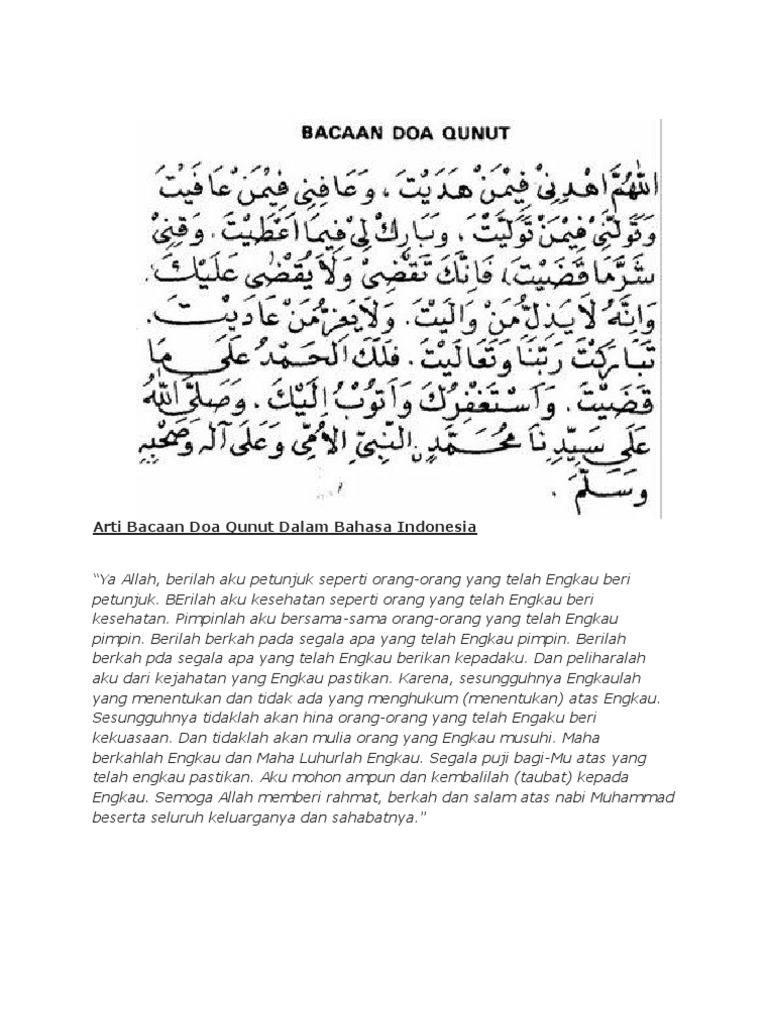 BACAAN DOA QUNUT
اَللّٰهُمَّ اهْدِنِيْ فِيْمَنْ هَدَيْتَ ، وَعَافِنِي فِيْمَنْ عَافَيْتَ
وَتَوَلَّنِيْ فِيْمَنْ تَوَلَّيْتَ ، وَبَارِكْ لِيْ فِيمَا اَعْطَيْتَ . وَقِنِيْ
شَرَّ مَا قَضَيْتَ ، فَاِنَّكَ تَقْضِيْ وَلَا يُقْضٰى عَلَيْكَ .
وَاِنَّهُ لَا يَذِلُّ مَنْ وَالَيْتَ . وَلَا يَعِزُّ مَنْ عَادَيْتَ .
تَبَارَكْتَ رَبَّنَا وَتَعَالَيْتَ . فَلَكَ الْحَمْدُ عَلَى مَا
قَضَيْتَ . وَاَسْتَغْفِرُكَ وَاَتُوْبُ اِلَيْكَ . وَصَلَّى اللهُ
عَلَى سَيِّدِنَا مُحَمَّدٍ النَّبِيِّ الْأُمِّيِّ وَعَلَى آلِهِ وَصَحْبِهِ
وَسَلَّمَ .
Arti Bacaan Doa Qunut Dalam Bahasa Indonesia
“Ya Allah, berilah aku petunjuk seperti orang-orang yang telah Engkau beri
petunjuk. BErilah aku kesehatan seperti orang yang telah Engkau beri
kesehatan. Pimpinlah aku bersama-sama orang-orang yang telah Engkau
pimpin. Berilah berkah pada segala apa yang telah Engkau pimpin. Berilah
berkah pda segala apa yang telah Engkau berikan kepadaku. Dan peliharalah
aku dari kejahatan yang Engkau pastikan. Karena, sesungguhnya Engkaulah
yang menentukan dan tidak ada yang menghukum (menentukan) atas Engkau.
Sesungguhnya tidaklah akan hina orang-orang yang telah Engaku beri
kekuasaan. Dan tidaklah akan mulia orang yang Engkau musuhi. Maha
berkahlah Engkau dan Maha Luhurlah Engkau. Segala puji bagi-Mu atas yang
telah engkau pastikan. Aku mohon ampun dan kembalilah (taubat) kepada
Engkau. Semoga Allah memberi rahmat, berkah dan salam atas nabi Muhammad
beserta seluruh keluarganya dan sahabatnya.”